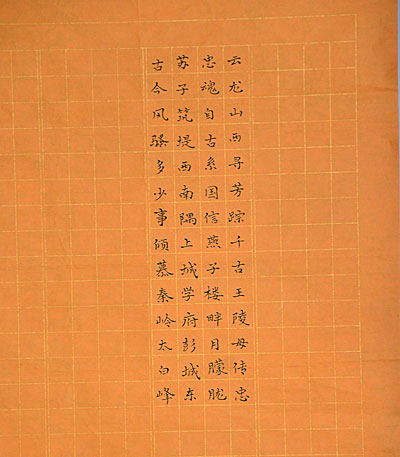 云龙山西寻芳踪千古王陵母传忠
忠魂自古系国信燕子楼畔月朦胧
苏子筑堤西南隅上城学府彭城东
古今风骚多少事倾慕秦岭太白峰